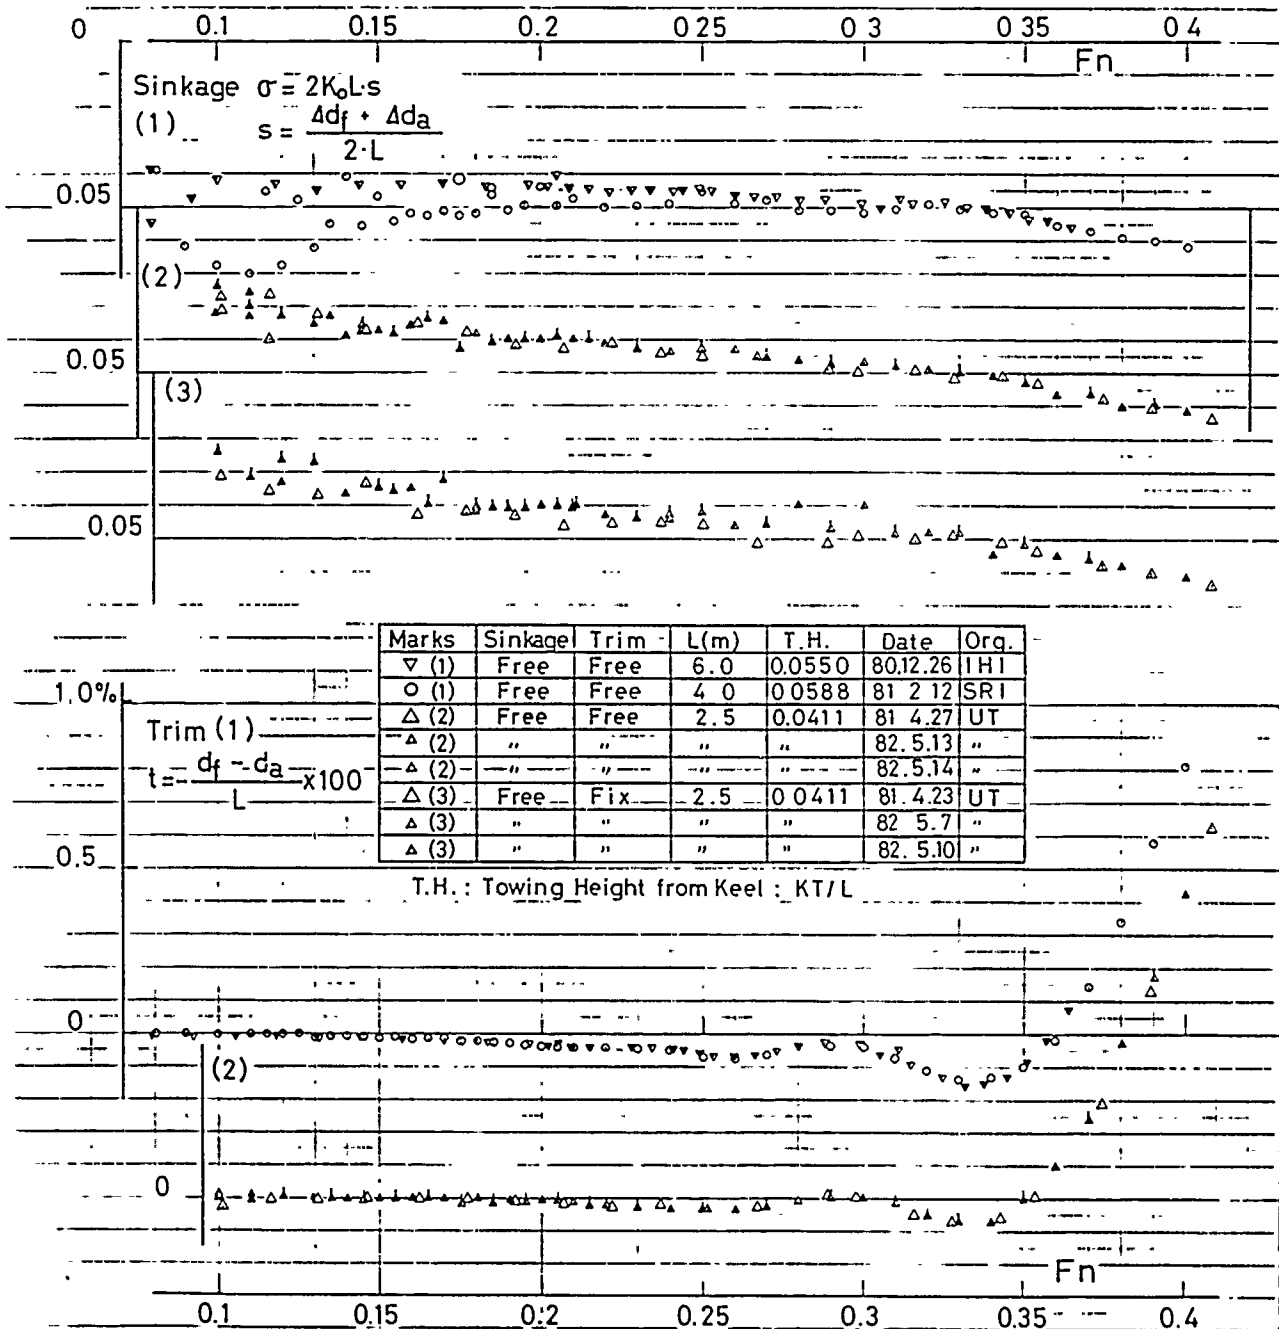 0 0.1 0.15 0.2 0.25 0.3 0.35 0.4
Fn
Sinkage σ = 2K₀L·s
(1) s = Δdf + Δda / 2·L
0.05
(2)
0.05
(3)
0.05
Marks Sinkage Trim L(m) T.H. Date Org.
▽ (1) Free Free 6.0 0.0550 80.12.26 IHI
○ (1) Free Free 4 0 0.0588 81 2 12 SRI
△ (2) Free Free 2.5 0.0411 81 4.27 UT
△ (2) " " " " 82.5.13 "
△ (2) " " " " 82.5.14 "
△ (3) Free Fix 2.5 0.0411 81.4.23 UT
△ (3) " " " " 82 5.7 "
△ (3) " " " " 82.5.10 "
T.H. : Towing Height from Keel : KT/L
1.0%
Trim (1)
t = - df - da / L x100
0.5
0
(2)
0
Fn
0.1 0.15 0.2 0.25 0.3 0.35 0.4